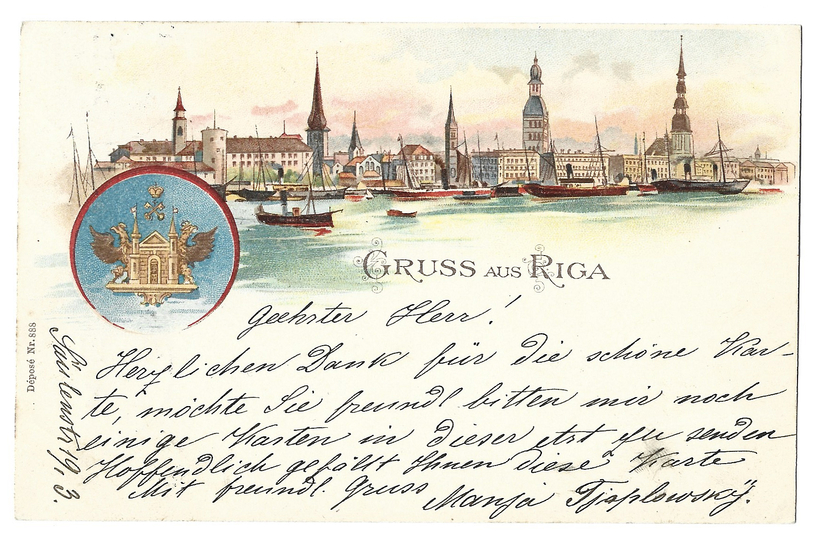 GRUSS AUS RIGA
Geehrter Herr!
Herzlichen Dank für die schöne Kar-
te, möchte Sie freundl bitten mir noch
einige Karten in dieser Art zu senden
Hoffendlich gefällt Ihnen diese Karte
Mit freundl. Gruss
Manja
Säulenstr 19, 3.
Déposé Nr. 888